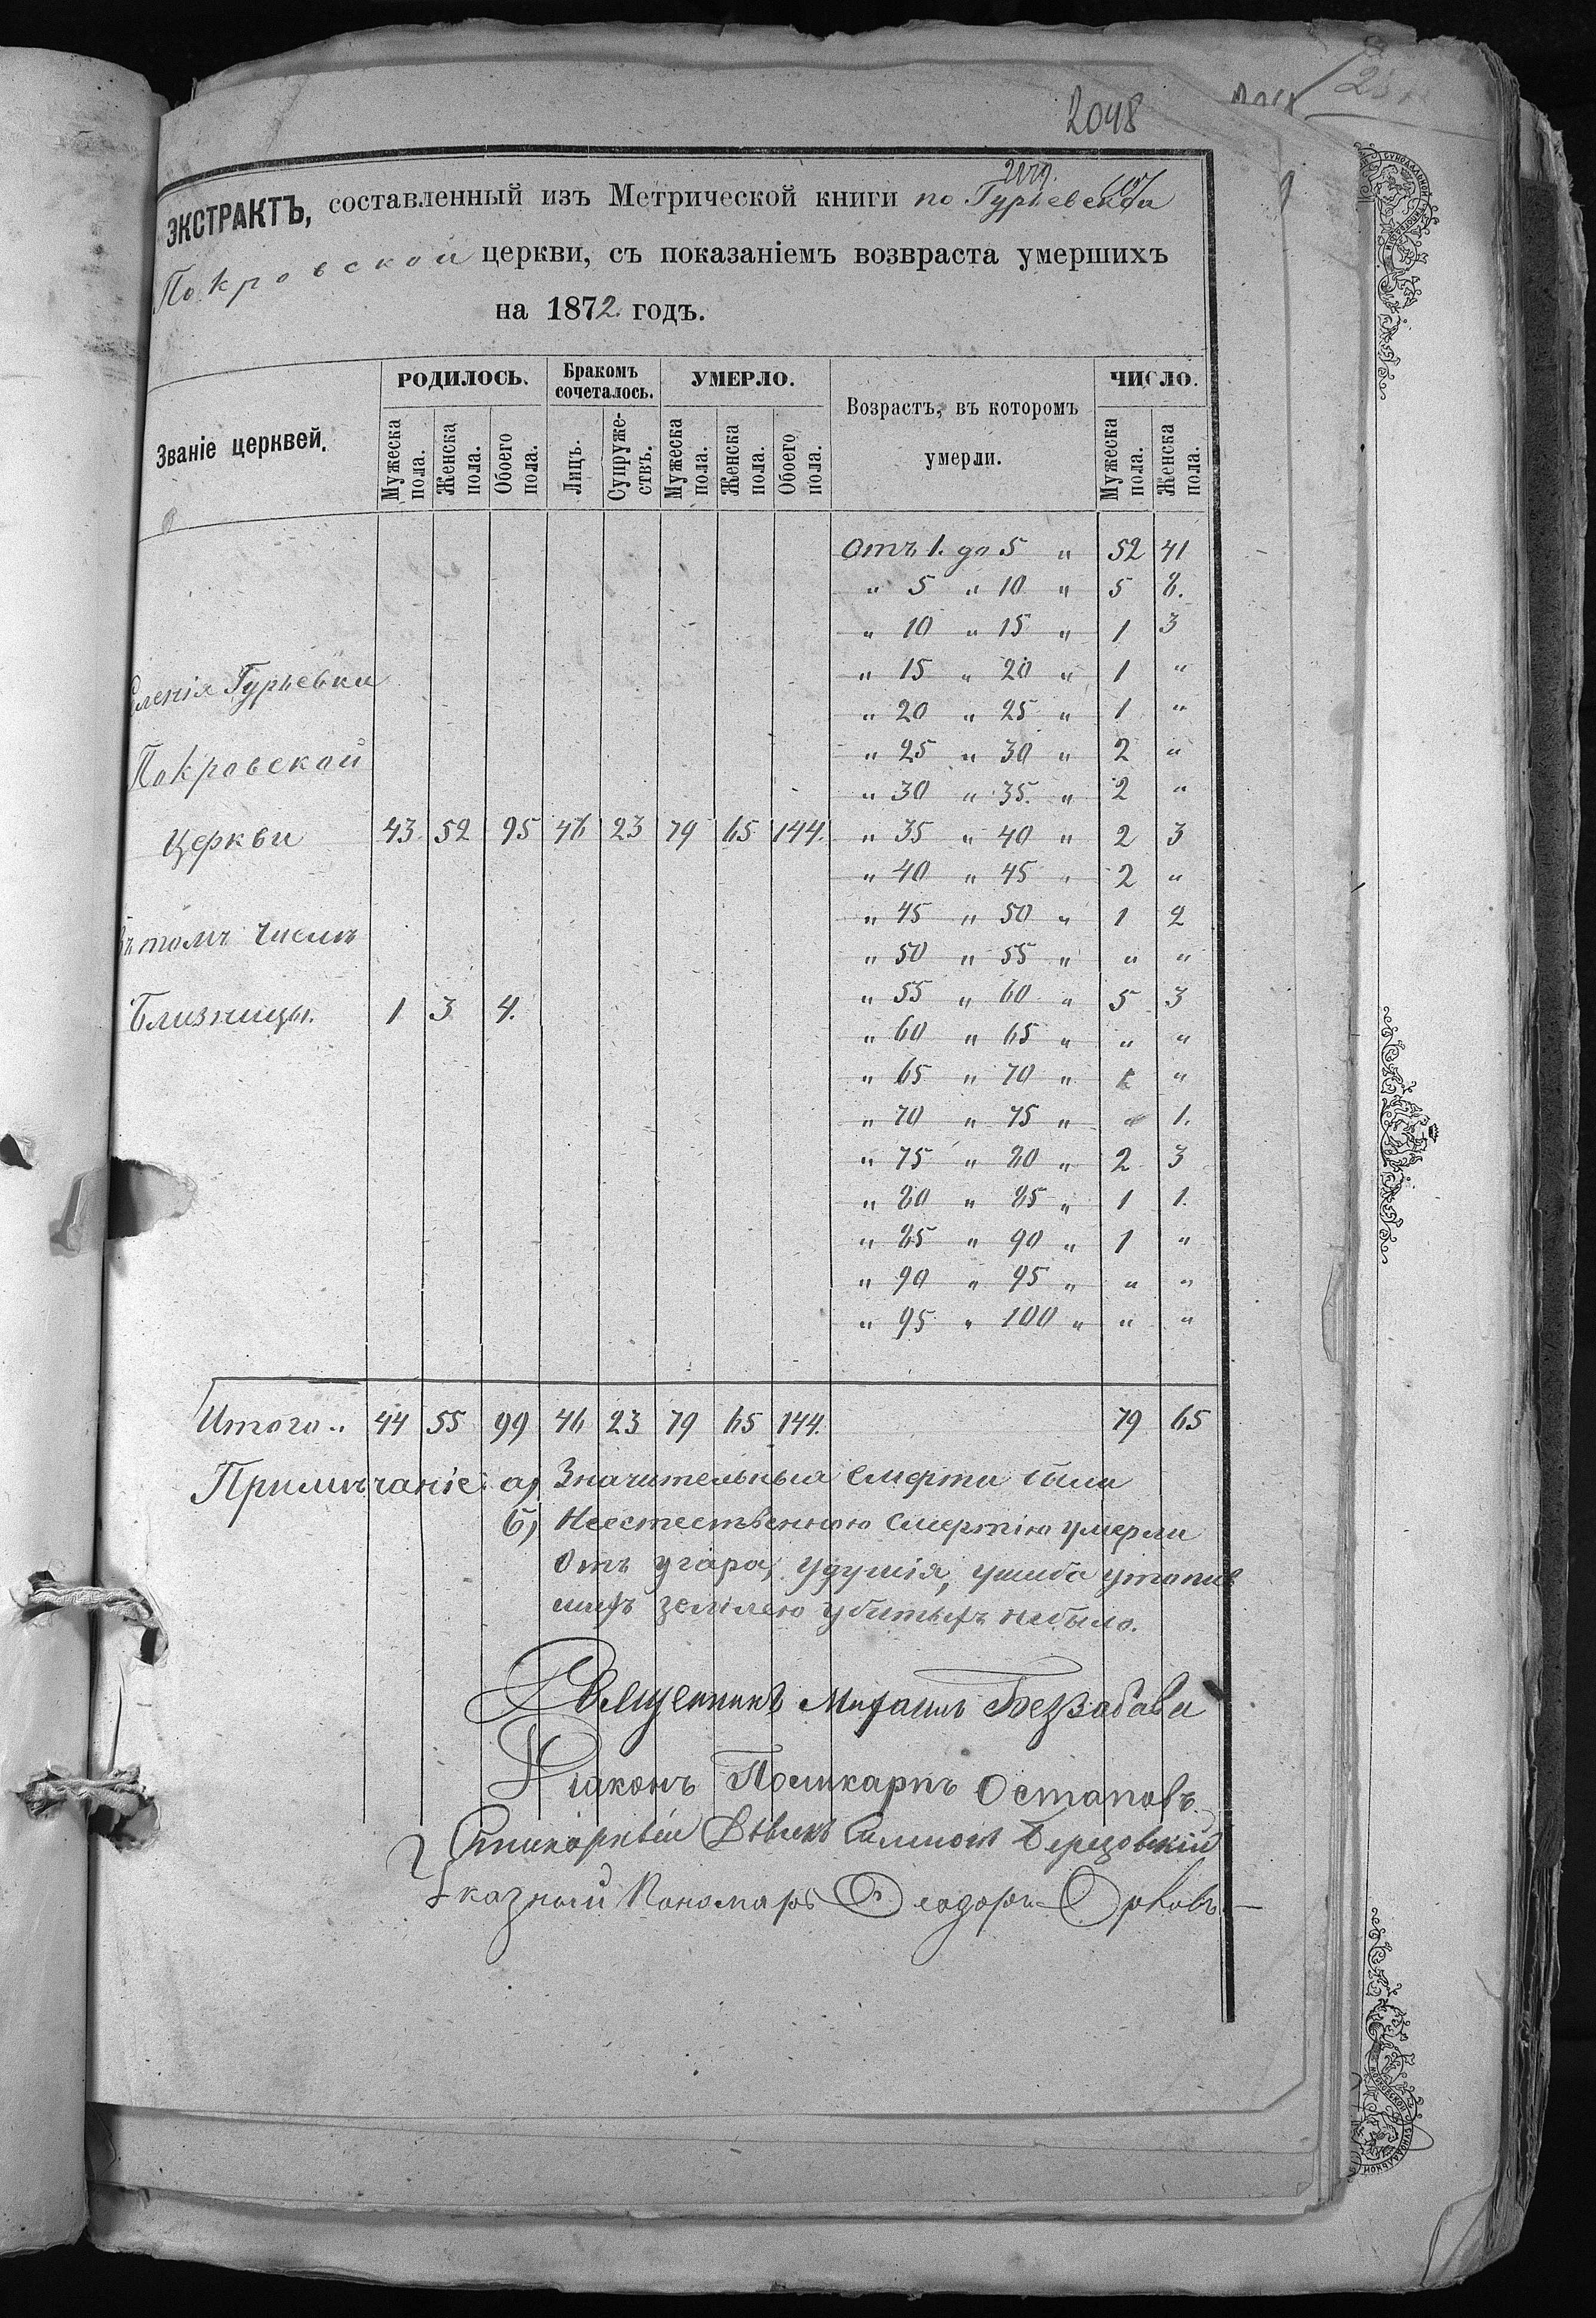 2048
ЭКСТРАКТЪ, составленный изъ Метрической книги по Гурьевской
Покровской церкви, съ показаніемъ возвраста умершихъ
на 1872. годъ.
Званіе церквей. РОДИЛОСЬ. Бракомъ сочеталось. УМЕРЛО. Возрастъ, въ которомъ умерли. ЧИСЛО.
Мужеска пола. Женска пола. Обоего пола. Лицъ. Супружествъ. Мужеска пола. Женска пола. Обоего пола. Мужеска пола. Женска пола.
Отъ 1. до 5 " 52 41
" 5 " 10 " 5 8.
" 10 " 15 " 1 3
селенія Гурьевки " 15 " 20 " 1 "
" 20 " 25 " 1 "
Покровской " 25 " 30 " 2 "
" 30 " 35. " 2 "
Церкви 43 52 95 46 23 79 65 144. " 35 " 40 " 2 3
" 40 " 45 " 2 "
Въ томъ числѣ " 45 " 50 " 1 2
" 50 " 55 " " "
Близницы. 1 3 4. " 55 " 60 " 5 3
" 60 " 65 " " "
" 65 " 70 " "
" 70 " 75 " " 1.
" 75 " 80 " 2 3
" 80 " 85 " 1 1.
" 85 " 90 " 1 "
" 90 " 95 " " "
" 95 " 100 " " "
Итого.. 44 55 99 46 23 79 65 144. 79 65
Примѣчаніе: а) Значительныя смерти были
б) Неестественною смертію умерли
отъ угара, удушія, ушиба утопив
шихъ землею убитыхъ небыло.
Священникъ Михаилъ
Діаконъ Поликарпъ Остаповъ.
Стихарный Дьячекъ Симеонъ Березовскій
Указный Пономарь Ѳеодоръ